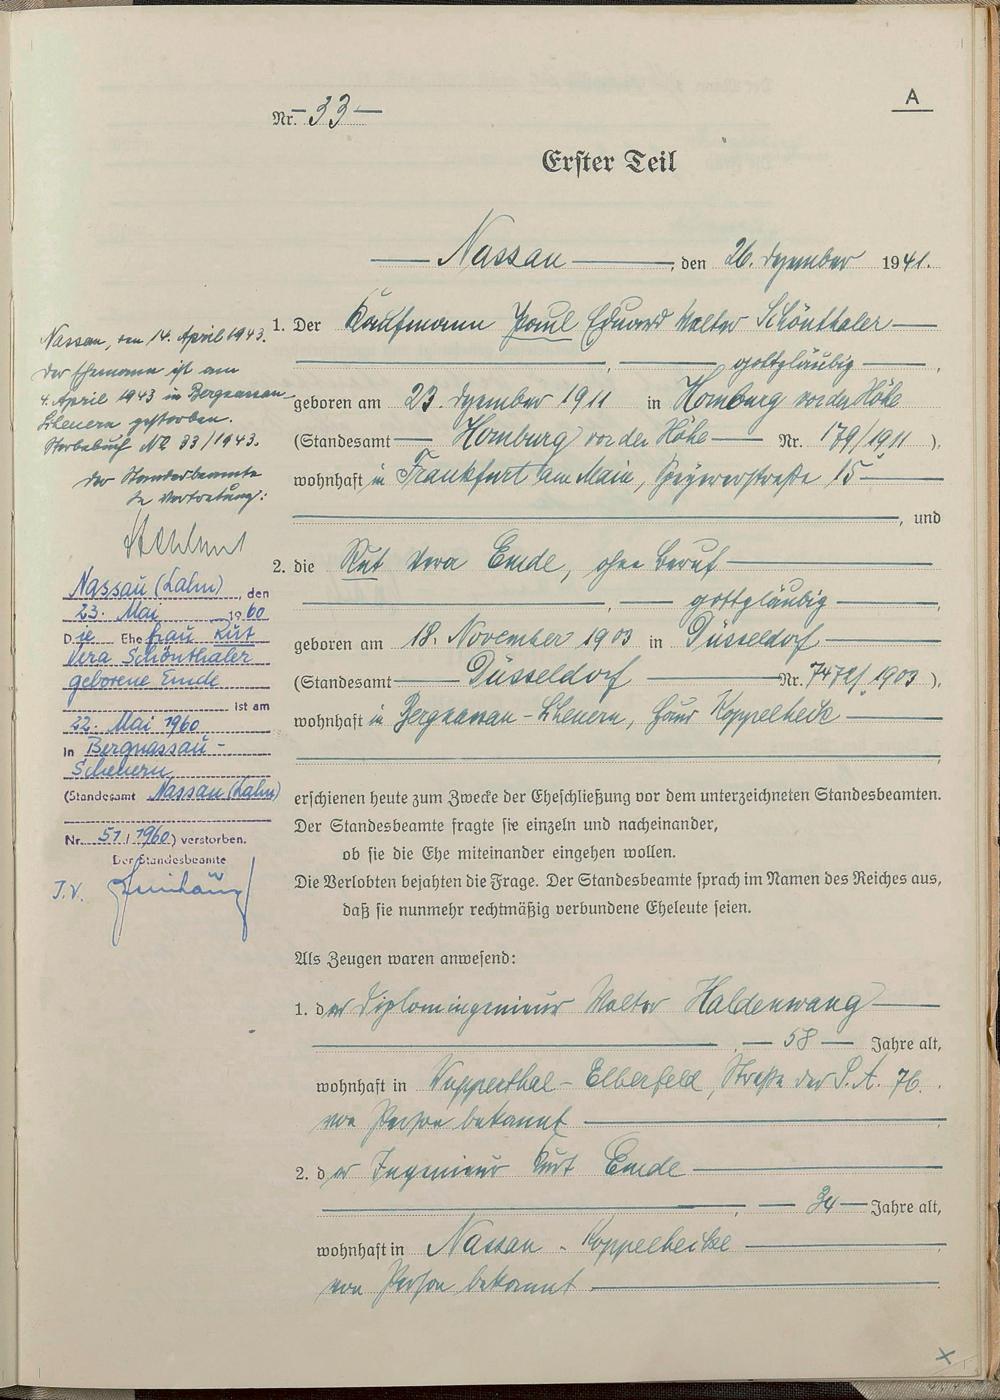 A
Nr. 33
Erster Teil
Nassau, den 26. Dezember 1941.
1. Der Kaufmann Paul Eduard Walter Schönthaler
, gottgläubig,
geboren am 23. Dezember 1911 in Homburg vor der Höhe
(Standesamt Homburg vor der Höhe Nr. 179/1911).
wohnhaft in Frankfurt am Main, 15
, und
2. die Rut Vera Emde, ohne Beruf
, gottgläubig,
geboren am 18. November 1903 in Düsseldorf
(Standesamt Düsseldorf Nr. 7472/1903),
wohnhaft in Bergnassau-Scheuern, Haus Koppelheck
erschienen heute zum Zwecke der Eheschließung vor dem unterzeichneten Standesbeamten.
Der Standesbeamte fragte sie einzeln und nacheinander,
ob sie die Ehe miteinander eingehen wollen.
Die Verlobten bejahten die Frage. Der Standesbeamte sprach im Namen des Reiches aus,
daß sie nunmehr rechtmäßig verbundene Eheleute seien.
Als Zeugen waren anwesend:
1. der Diplomingenieur Walter Haldenwang
, 58 Jahre alt,
wohnhaft in Wupperthal-Elberfeld, Straße der S.A. 76.
von Person bekannt
2. der Ingenieur Kurt Emde
, 34 Jahre alt,
wohnhaft in Nassau - Koppelheike
von Person bekannt
Nassau, den 14. April 1943.
Der Ehemann ist am
4. April 1943 in Bergnassau-
Scheuern gestorben.
Sterbebuch No 33/1943.
Der Standesbeamte
In Vertretung:
Nassau (Lahn), den
23. Mai 1960
Die Ehefrau Rut
Vera Schönthaler
geborene Emde
ist am
22. Mai 1960
in Bergnassau-
Scheuern
(Standesamt Nassau (Lahn)
Nr. 51/1960) verstorben.
Der Standesbeamte
I.V.